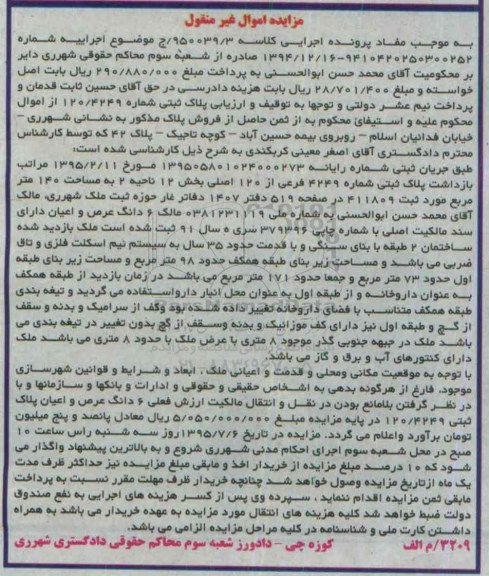 مزایده اموال غیر منقول
به موجب مفاد پرونده اجرایی کلاسه ۹۵۰۰۳۹/۳/ج موضوع اجراییه شماره
۹۴۱۰۴۲۰۲۵۰۳۰۰۲۵۲-۱۳۹۴/۱۲/۱۶ صادره از شعبه سوم محاکم حقوقی شهرری دایر
بر محکومیت آقای محمد حسن ابوالحسنی به پرداخت مبلغ ۲۹۰/۸۸۰/۰۰۰ ریال بابت اصل
خواسته و مبلغ ۲۸/۷۰۱/۴۰۰ ریال بابت هزینه دادرسی در حق آقای حسین ثابت قدمان و
پرداخت نیم عشر دولتی و توجها به توقیف و ارزیابی پلاک ثبتی شماره ۱۲۰/۴۲۴۹ از اموال
محکوم علیه و استیفای محکوم به از ثمن حاصل از فروش پلاک مذکور به نشانی شهرری -
خیابان فدائیان اسلام - روبروی بیمه حسین آباد - کوچه تاجیک - پلاک ۴۲ که توسط کارشناس
محترم دادگستری آقای اصغر معینی کربکندی به شرح ذیل کارشناسی شده است:
طبق جریان ثبتی شماره رایانه ۱۳۹۵۰۵۸۰۱۰۲۴۰۰۰۲۷۳ مورخ ۱۳۹۵/۲/۱۱ مراتب
بازداشت پلاک ثبتی شماره ۴۲۴۹ فرعی از ۱۲۰ اصلی بخش ۱۲ ناحیه ۲ به مساحت ۱۴۰ متر
مربع مورد ثبت ۴۱۱۸۰۹ در صفحه ۵۱۹ دفتر ۱۴۰۷ دفاتر غار حوزه ثبت ملک شهرری، مالک
آقای محمد حسن ابوالحسنی به شماره ملی ۰۳۸۱۲۳۱۱۱۹ مالک ۶ دانگ عرص و اعیان دارای
سند مالکیت اصلی با شماره چاپی ۳۷۹۳۹۶ سری ه سال ۹۱ ثبت شده است ملک بازدید شده
ساختمان ۲ طبقه با بنای سنگی و با قدمت حدود ۳۵ سال به سیستم نیم اسکلت فلزی و تاق
ضربی می باشد و مساحت زیر بنای طبقه همکف حدود ۹۸ متر مربع و مساحت زیر بنای طبقه
اول حدود ۷۳ متر مربع و جمعا حدود ۱۷۱ متر مربع می باشد در زمان بازدید از طبقه همکف
به عنوان داروخانه و از طبقه اول به عنوان محل انبار دارواستفاده می گردید و تیغه بندی
طبقه همکف متناسب با فضای داروخانه تغییر داده شده بود وکف از سرامیک و بدنه و سقف
از گچ و طبقه اول نیز دارای کف موزائیک و بدنه وسقف از گچ بدون تغییر در تیغه بندی می
باشد ملک در جبهه جنوبی گذر موجود ۸ متری با عرض ملک با حدود ۸ متری می باشد ملک
دارای کنتورهای آب و برق و گاز می باشد.
با توجه به موقعیت مکانی ومحلی و قدمت و اعیانی ملک، ابعاد و شرایط و قوانین شهرسازی
موجود، فارغ از هرگونه بدهی به اشخاص حقیقی و حقوقی و ادارات و بانکها و سازمانها و با
در نظر گرفتن بلامانع بودن در نقل و انتقال مالکیت ارزش فعلی ۶ دانگ عرص و اعیان پلاک
ثبتی ۱۲۰/۴۲۴۹ در پایه مزایده مبلغ ۵/۰۵۰/۰۰۰/۰۰۰ ریال معادل پانصد و پنج میلیون
تومان برآورد واعلام می گردد. مزایده در تاریخ ۱۳۹۵/۷/۶ روز سه شنبه راس ساعت ۱۰
صبح در محل شعبه سوم اجرای احکام مدنی شهرری شروع و به بالاترین پیشنهاد واگذار می
شود که ۱۰ درصد مبلغ مزایده از خریدار اخذ و مابقی مبلغ مزایده نیز حداکثر ظرف مدت
یک ماه ازتاریخ مزایده وصول خواهد شد چنانچه خریدار ظرف مهلت مقرر نسبت به پرداخت
مابقی ثمن مزایده اقدام ننماید، سپرده وی پس از کسر هزینه های اجرایی به نفع صندوق
دولت ضبط خواهد شد کلیه هزینه های انتقال مورد مزایده به عهده خریدار می باشد به همراه
داشتن کارت ملی و شناسنامه در کلیه مراحل مزایده الزامی می باشد.
۳۲۰۹/م الف کوزه چی - دادورز شعبه سوم محاکم حقوقی دادگستری شهرری